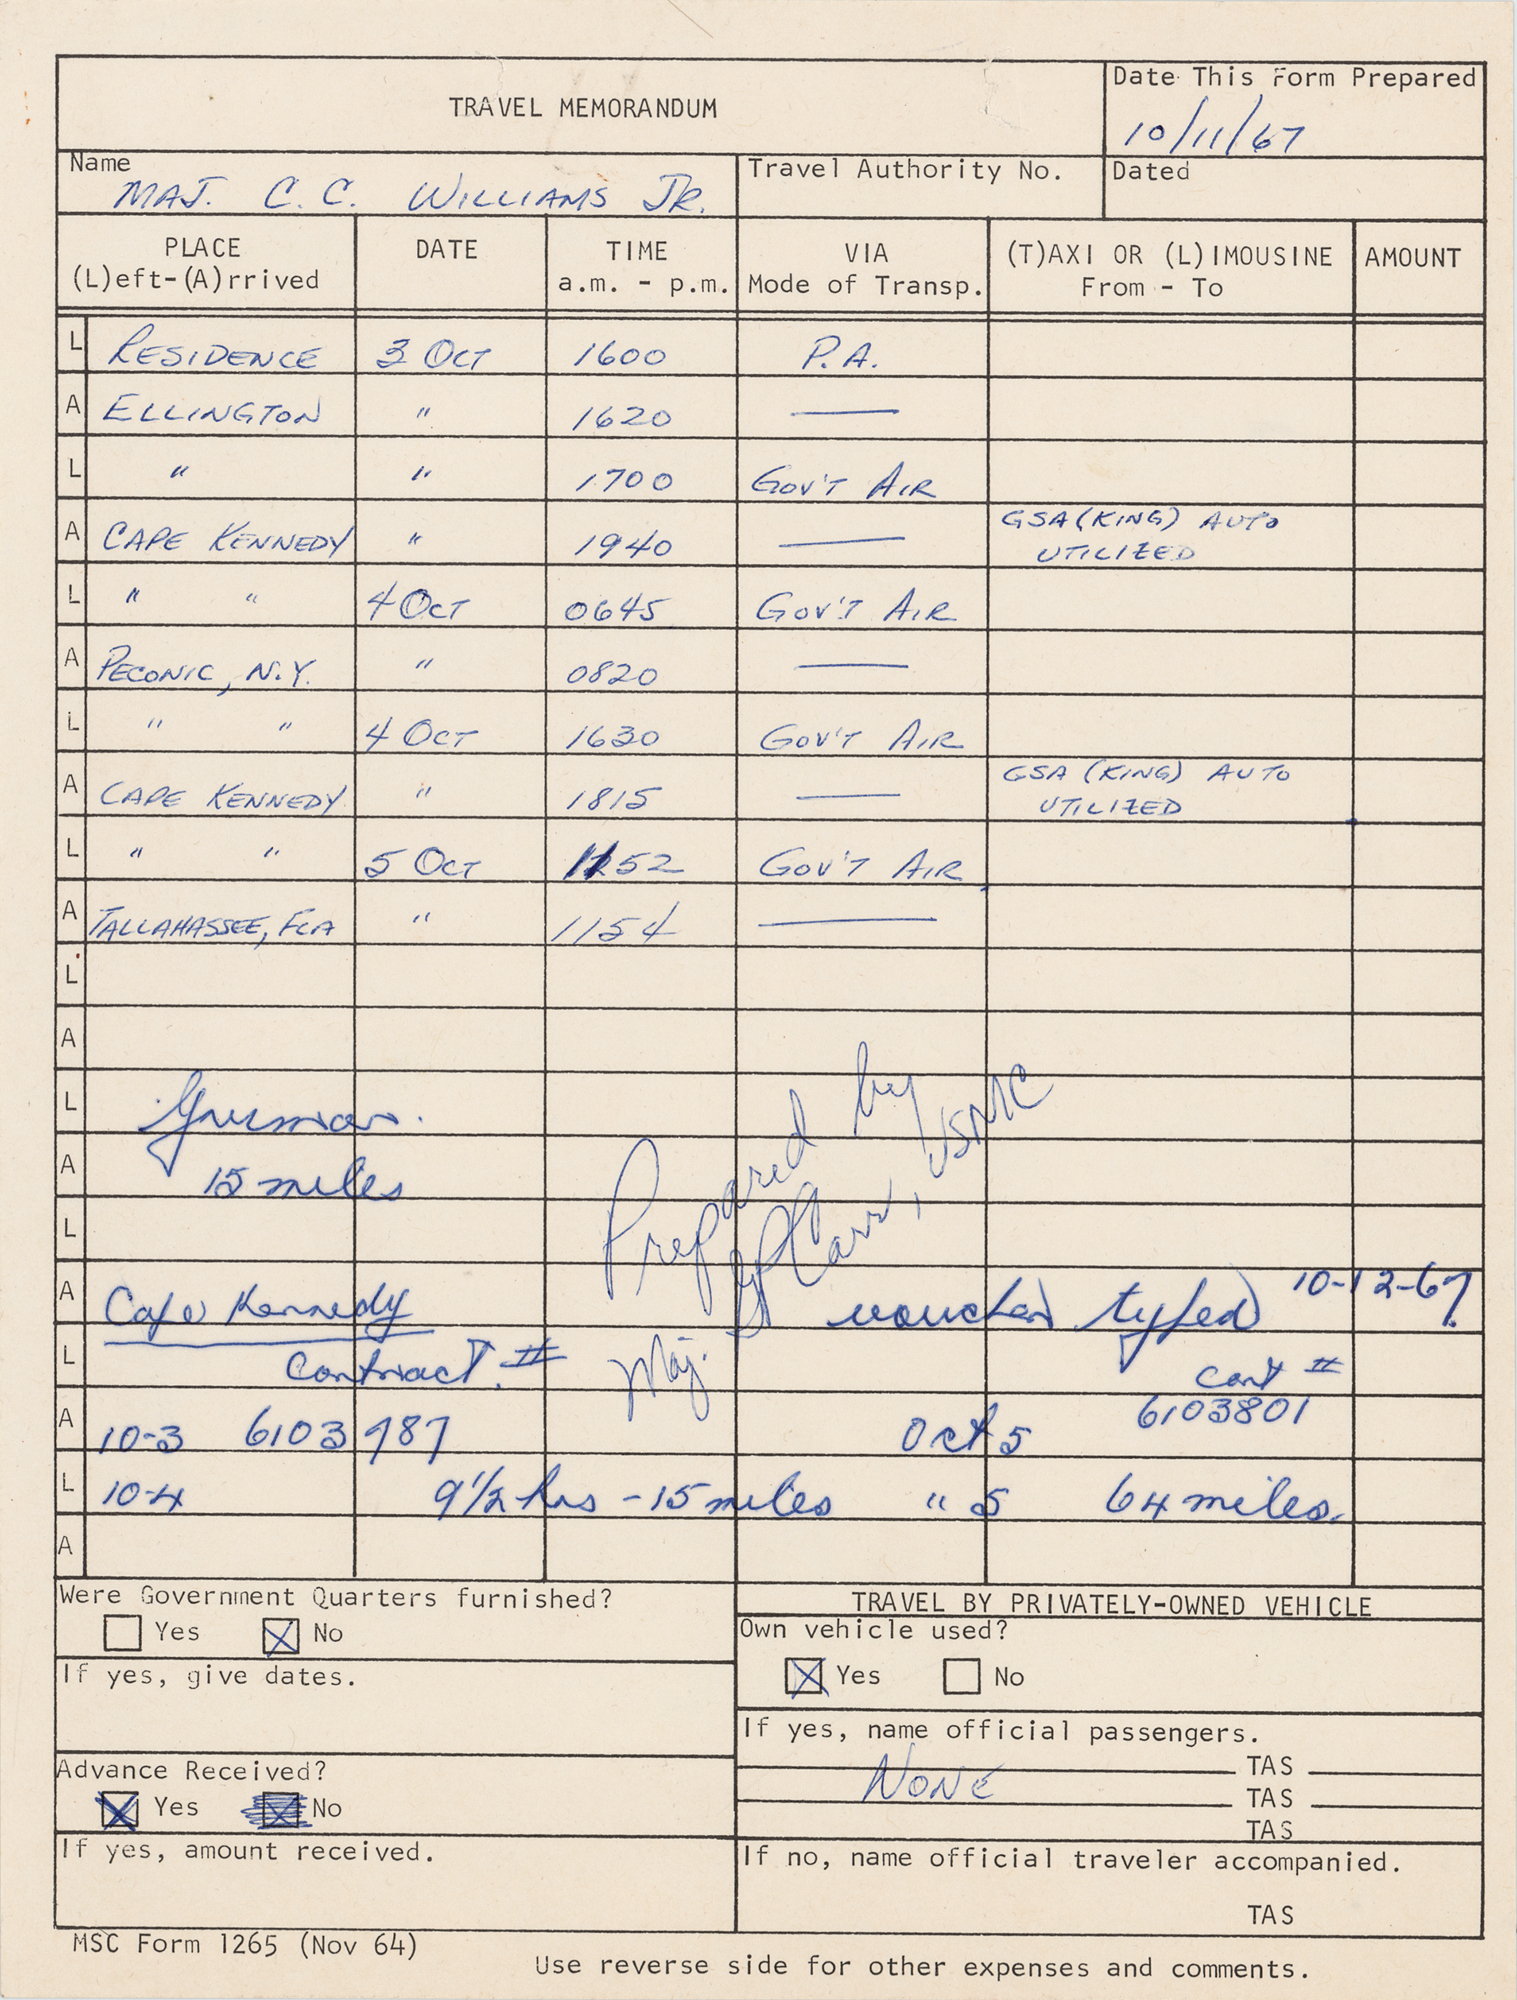 TRAVEL MEMORANDUM
Date This Form Prepared
10/11/67
Name
MAJ. C.C. WILLIAMS JR.
Travel Authority No.
Dated
PLACE
(L)eft-(A)rrived
DATE
TIME
a.m. - p.m.
VIA
Mode of Transp.
(T)AXI OR (L)IMOUSINE
From - To
AMOUNT
L RESIDENCE 3 OCT 1600 P.A.
A ELLINGTON " 1620 —
L " " 1700 GOV'T AIR
A CAPE KENNEDY " 1940 — GSA (KING) AUTO
UTILIZED
L " " 4 OCT 0645 GOV'T AIR
A PECONIC, N.Y. " 0820 —
L " " 4 OCT 1630 GOV'T AIR
A CAPE KENNEDY " 1815 — GSA (KING) AUTO
UTILIZED
L " " 5 OCT 52 GOV'T AIR
A TALLAHASSEE, FLA " 1154 —
L
A
L Grumman.
A 15 miles
L
A Cape Kennedy
L Contract #
A 10-3 6103787
L 10-4 9 1/2 hrs - 15 miles
A
Prepared by
Maj. Carr, USMC
voucher typed 10-12-67
Cont #
Oct 5 6103801
" 5 64 miles.
Were Government Quarters furnished?
Yes No
If yes, give dates.
Advance Received?
Yes No
If yes, amount received.
TRAVEL BY PRIVATELY-OWNED VEHICLE
Own vehicle used?
Yes No
If yes, name official passengers.
NONE
TAS
TAS
TAS
If no, name official traveler accompanied.
TAS
MSC Form 1265 (Nov 64)
Use reverse side for other expenses and comments.